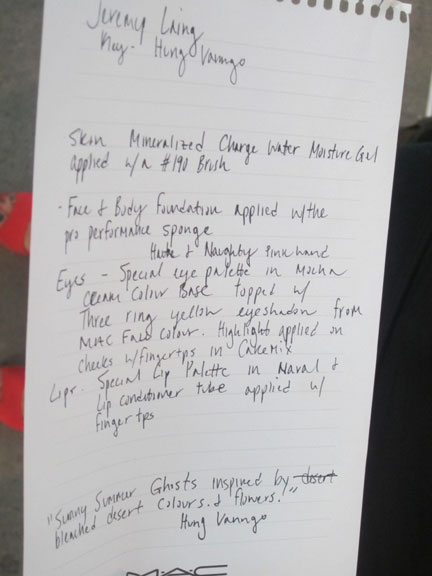 Jeremy Laing
Key - Hung Vanngo
Skin Mineralized Charge Water Moisture Gel
applied w/a #190 Brush
- Face & Body Foundation applied w/the
pro performance sponge
& Naughty Pink
Eyes - Special eye palette in Mocha
cream Colour Base topped w/
Three ring yellow eyeshadow from
MAC Face Colour. Highlight applied on
cheeks w/fingertps in Cakemix
Lips - Special Lip Palette in Naval &
Lip conditioner tube applied w/
finger tps
"Sunny Summer Ghosts inspired by desert
bleached desert Colours. & flowers."
Hung Vanngo
MAC